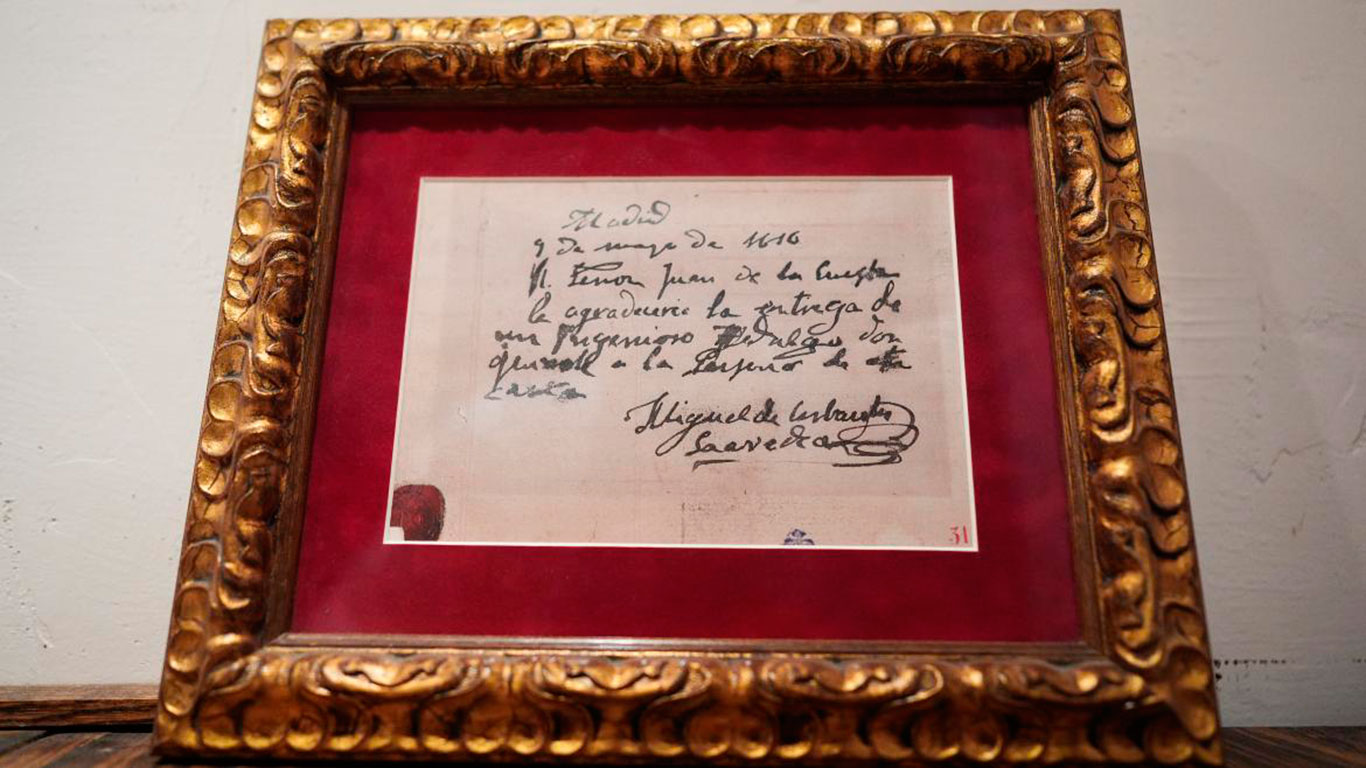 Madrid
9 de mayo de 1616
Señor Juan de la Cuesta
le agradeceré la entrega de
un Ingenioso Hidalgo don
a la de esta
carta
Miguel de Cerbantes
Saavedra
31